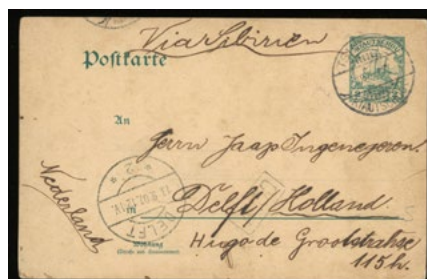 Via Sibirien
Postkarte
An
Herrn Jaap Ingenegeren.
in Delft / Holland.
Nederland
DELFT
Wohnung
(Straße und Hausnummer)
Hugo de Grootstrahse
115h.